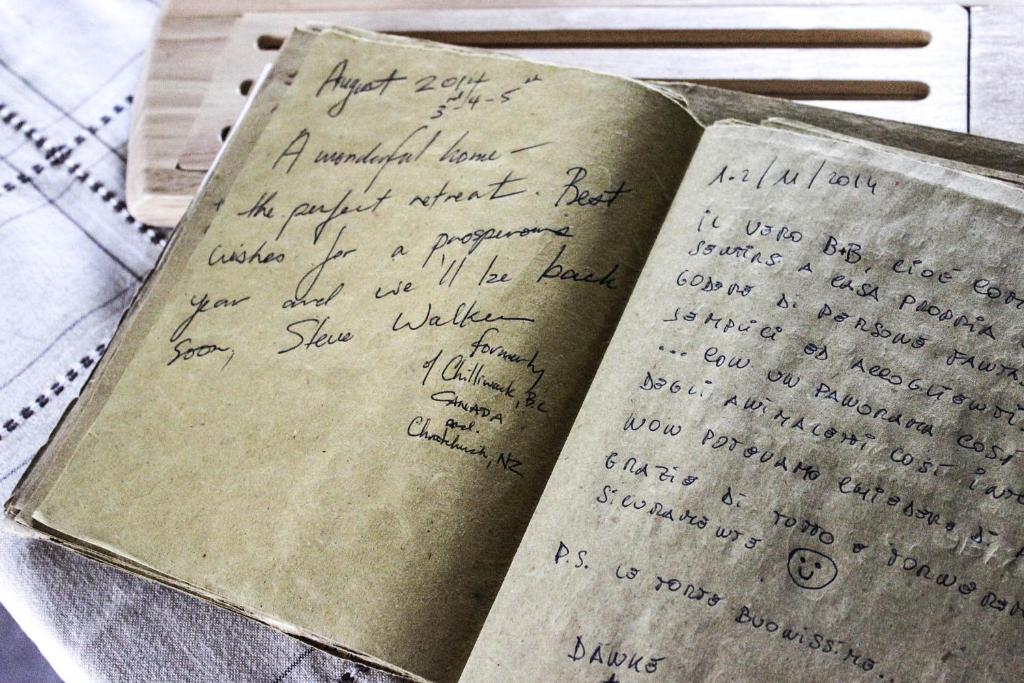 August 2014
3rd/4-5th
A wonderful home –
the perfect retreat. Best
wishes for a prosperous
year and we'll be back
soon, Steve Walker
formerly
of Chilliwack, B.C.
CANADA
and
Christchurch, NZ
1.2/11/2014
IL VERO B+B, CIOÈ COME
SENTIRSI A CASA PROPRIA
GODERE DI PERSONE
SEMPLICI ED ACCOGLIENTI
... CON UN PANORAMA COSÌ
DEGLI ANIMALETTI COSÌ
NON POTEVAMO CHIEDERE DI
GRAZIE DI TUTTO E
SICURAMENTE
P.S. LE TORTE BUONISSIME...
DANKE